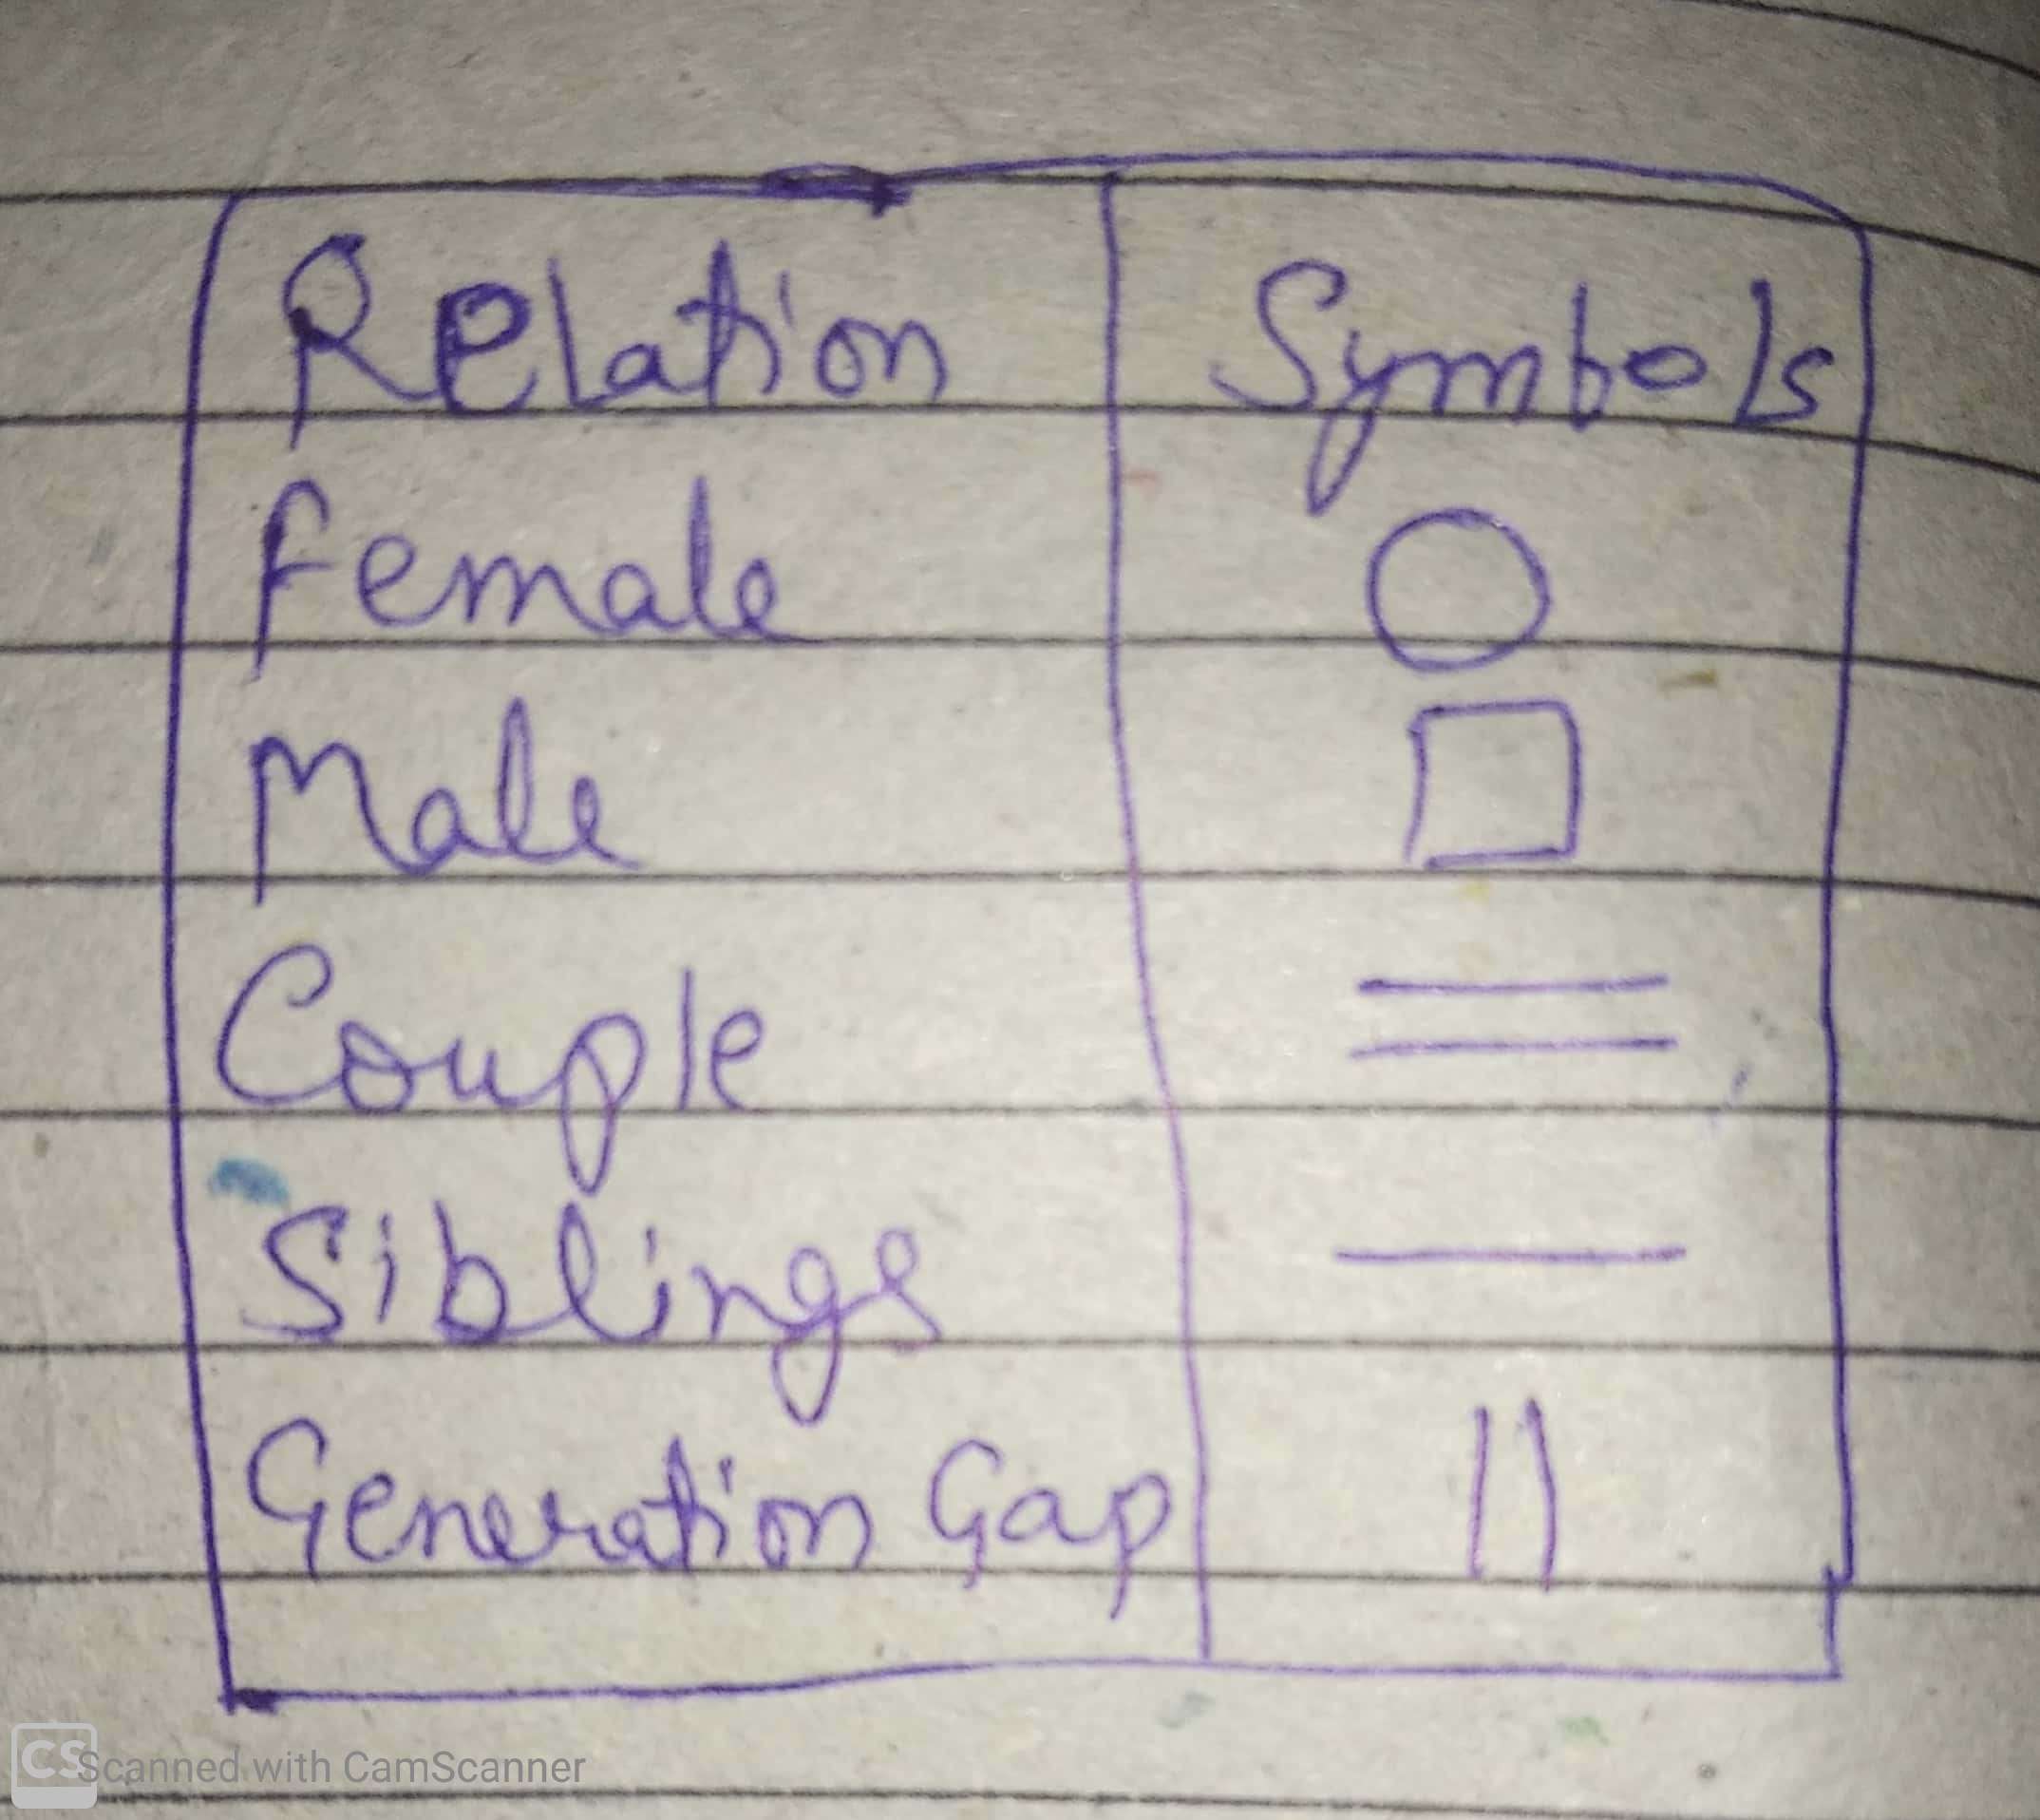 Relation Symbols
Female
Male
Couple
Siblings
Generation Gap
CS Scanned with CamScanner